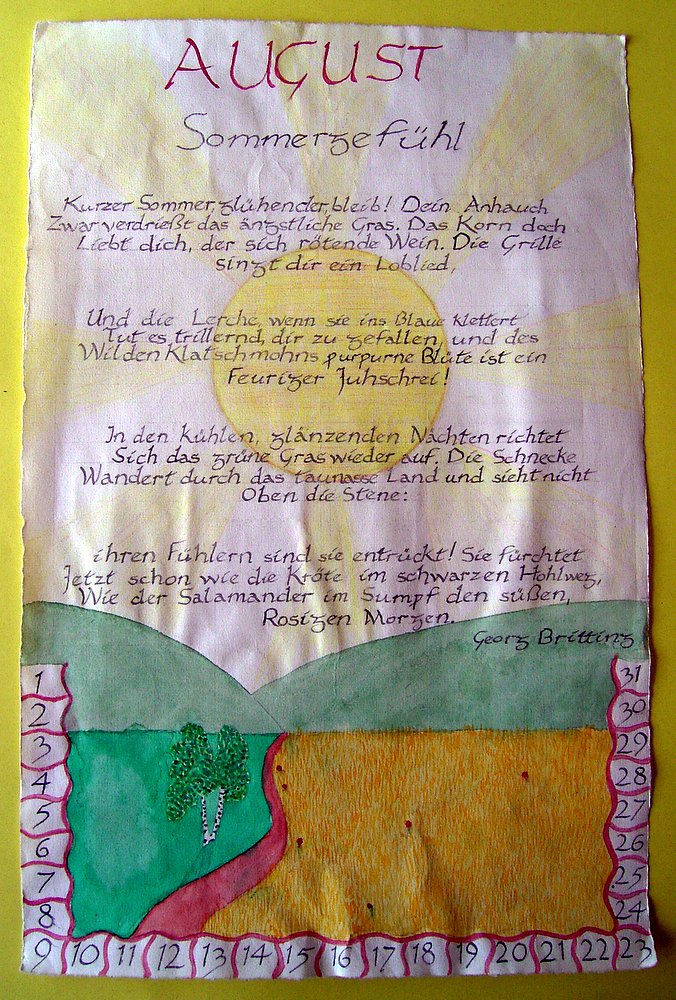 AUGUST
Sommergefühl
Kurzer Sommer, glühender, bleib! Dein Anhauch
Zwar verdrießt das ängstliche Gras. Das Korn doch
Liebt dich, der sich rötende Wein. Die Grille
singt dir ein Loblied,
Und die Lerche, wenn sie ins Blaue klettert
Tut es, trillernd, dir zu gefallen, und des
Wilden Klatschmohns purpurne Blüte ist ein
Feuriger Juhschrei!
In den kühlen, glänzenden Nächten richtet
Sich das grüne Gras wieder auf. Die Schnecke
Wandert durch das taunasse Land und sieht nicht
Oben die Stene:
ihren Fühlern sind sie entrückt! Sie fürchtet
Jetzt schon wie die Kröte im schwarzen Hohlweg,
Wie der Salamander im Sumpf den süßen,
Rosigen Morgen.
Georg Britting
1
2
3
4
5
6
7
8
9 10 11 12 13 14 15 16 17 18 19 20 21 22 23
31
30
29
28
27
26
25
24